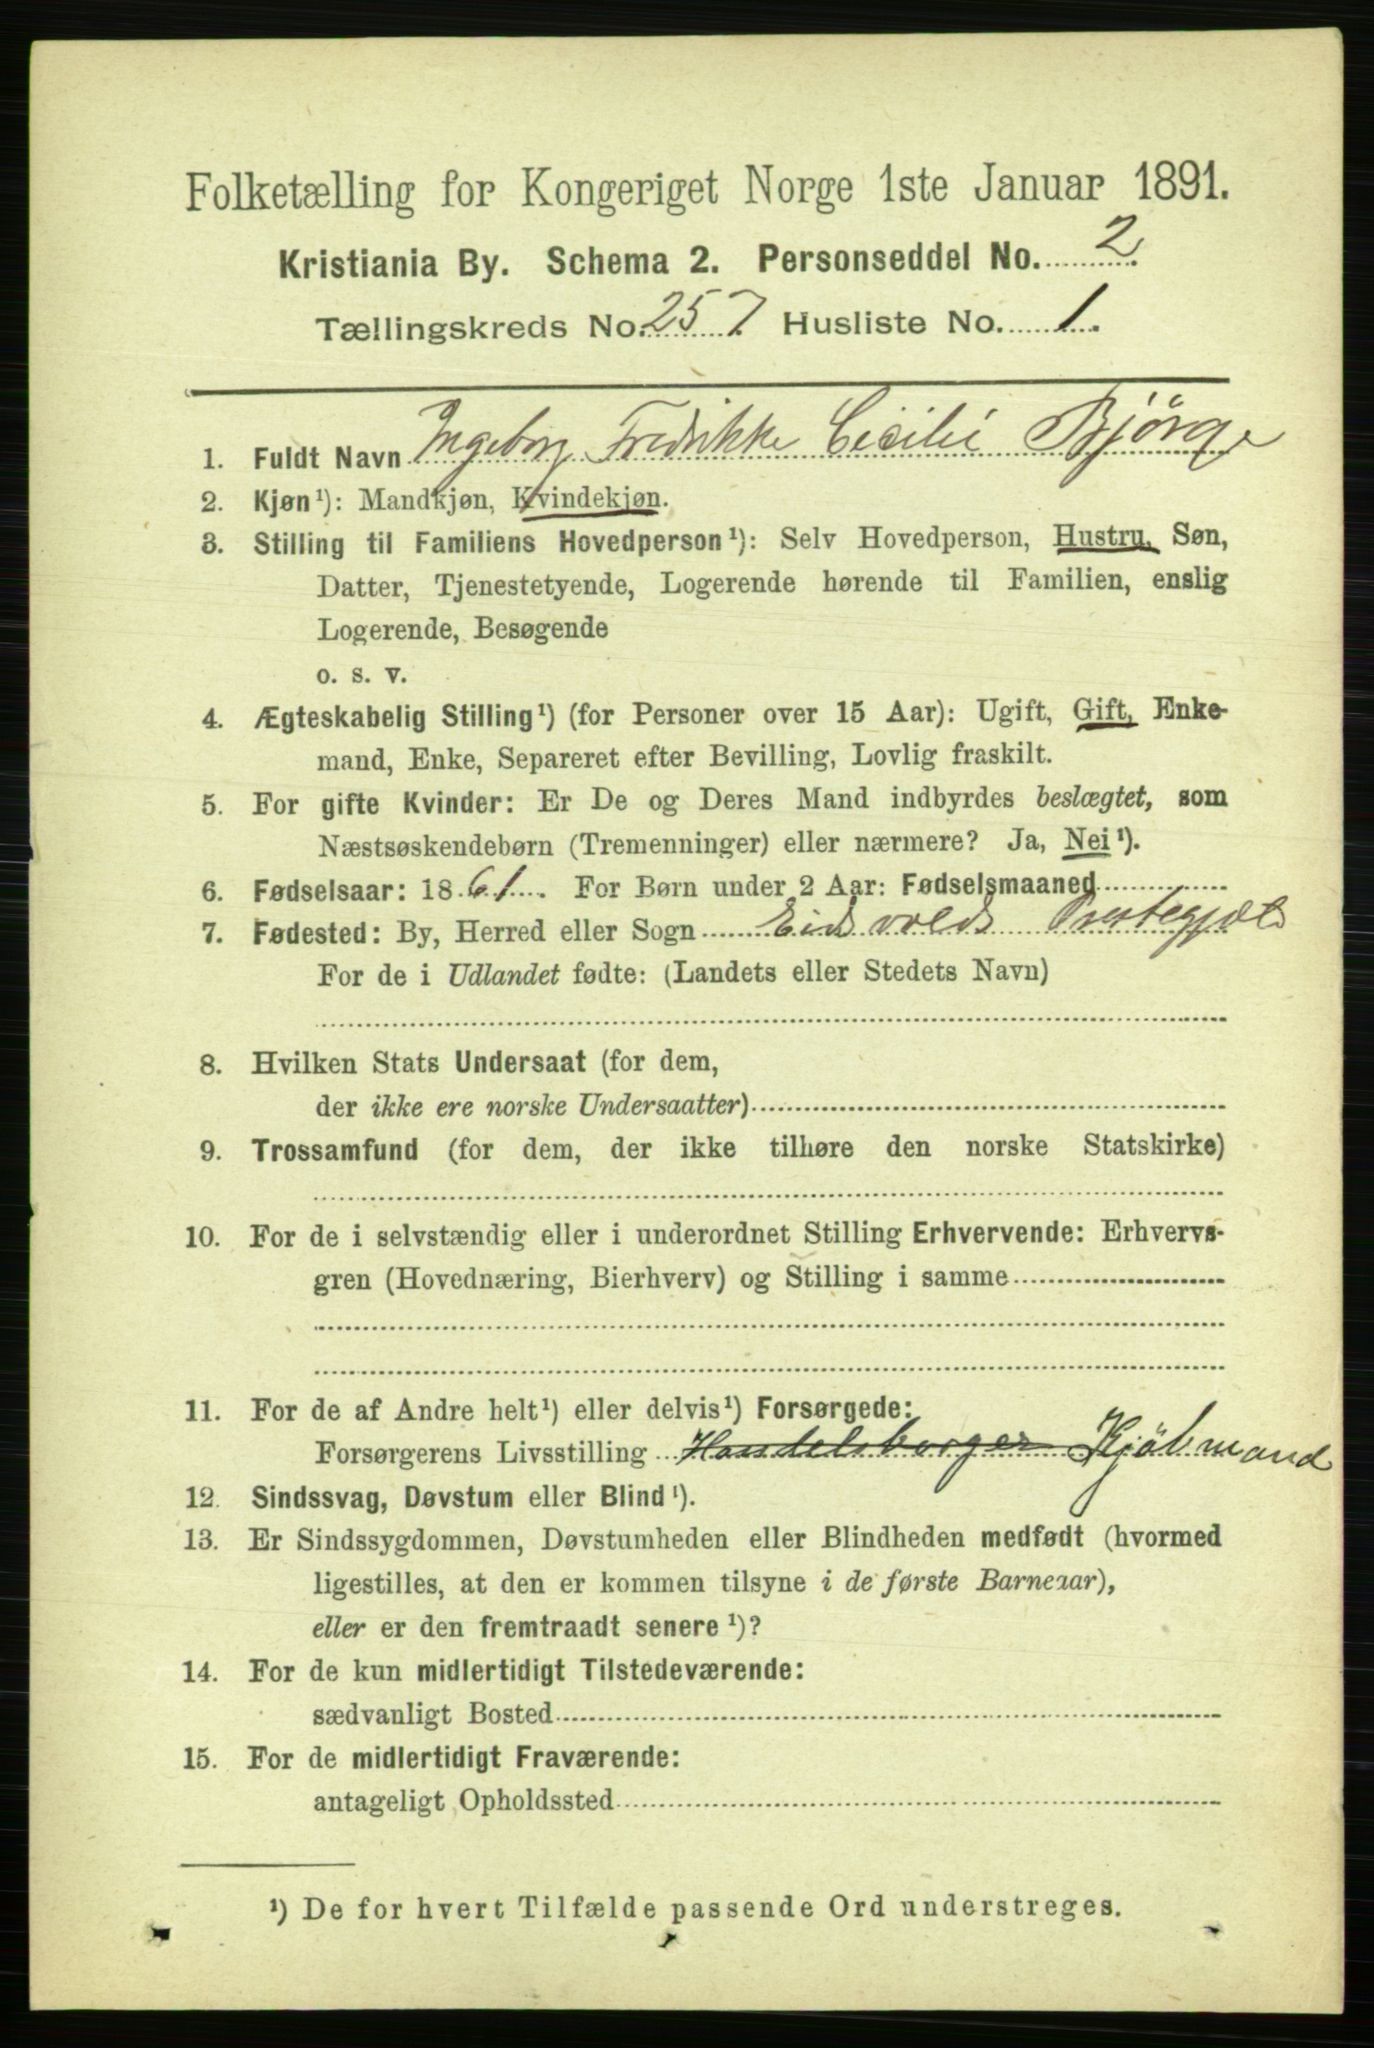 Folketælling for Kongeriget Norge 1ste Januar 1891.
Kristiania By. Schema 2. Personseddel No. 2
Tællingskreds No. 257 Husliste No. 1.
1. Fuldt Navn Ingeborg Fredrikke Cecilie Bjørge
2. Kjøn¹): Mandkjøn, Kvindekjøn.
3. Stilling til Familiens Hovedperson¹): Selv Hovedperson, Hustru, Søn,
Datter, Tjenestetyende, Logerende hørende til Familien, enslig
Logerende, Besøgende
o. s. v.
4. Ægteskabelig Stilling¹) (for Personer over 15 Aar): Ugift, Gift, Enke-
mand, Enke, Separeret efter Bevilling, Lovlig fraskilt.
5. For gifte Kvinder: Er De og Deres Mand indbyrdes beslægtet, som
Næstsøskendebørn (Tremenninger) eller nærmere? Ja, Nei¹).
6. Fødselsaar: 1861. For Børn under 2 Aar: Fødselsmaaned
7. Fødested: By, Herred eller Sogn Eidsvolds Præstegjæld
For de i Udlandet fødte: (Landets eller Stedets Navn)
8. Hvilken Stats Undersaat (for dem,
der ikke ere norske Undersaatter)
9. Trossamfund (for dem, der ikke tilhøre den norske Statskirke)
10. For de i selvstændig eller i underordnet Stilling Erhvervende: Erhvervs-
gren (Hovednæring, Bierhverv) og Stilling i samme
11. For de af Andre helt¹) eller delvis¹) Forsørgede:
Forsørgerens Livsstilling Handelsborger Kjöbmand
12. Sindssvag, Døvstum eller Blind¹).
13. Er Sindssygdommen, Døvstumheden eller Blindheden medfødt (hvormed
ligestilles, at den er kommen tilsyne i de første Barneaar),
eller er den fremtraadt senere¹)?
14. For de kun midlertidigt Tilstedeværende:
sædvanligt Bosted
15. For de midlertidigt Fraværende:
antageligt Opholdssted
¹) De for hvert Tilfælde passende Ord understreges.